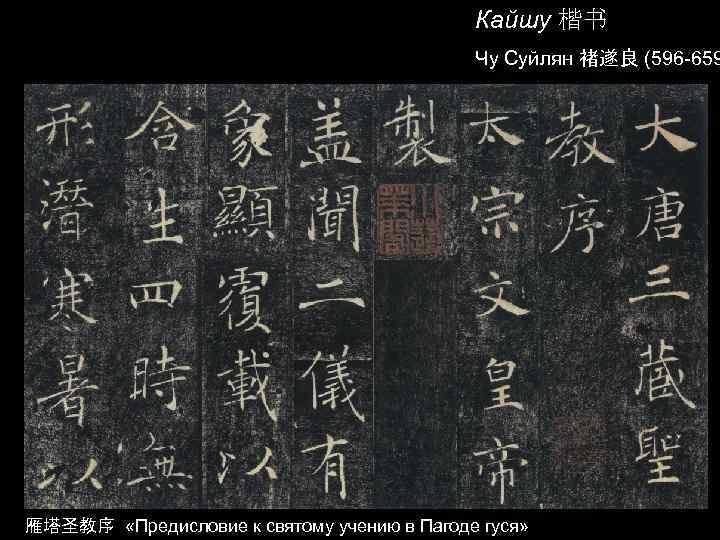 Кайшу 楷书
Чу Суйлян 褚遂良 (596-659
大唐三藏聖
教序
太宗文皇帝
製
盖聞二儀有
象顯覆載以
含生四時無
形潛寒暑以
雁塔圣教序 «Предисловие к святому учению в Пагоде гуся»